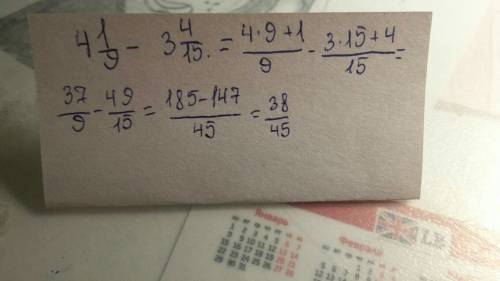 4 1/9 - 3 4/15. = (4·9+1)/9 - (3·15+4)/15 =
37/9 - 49/15 = (185-147)/45 = 38/45
Январь
Февраль